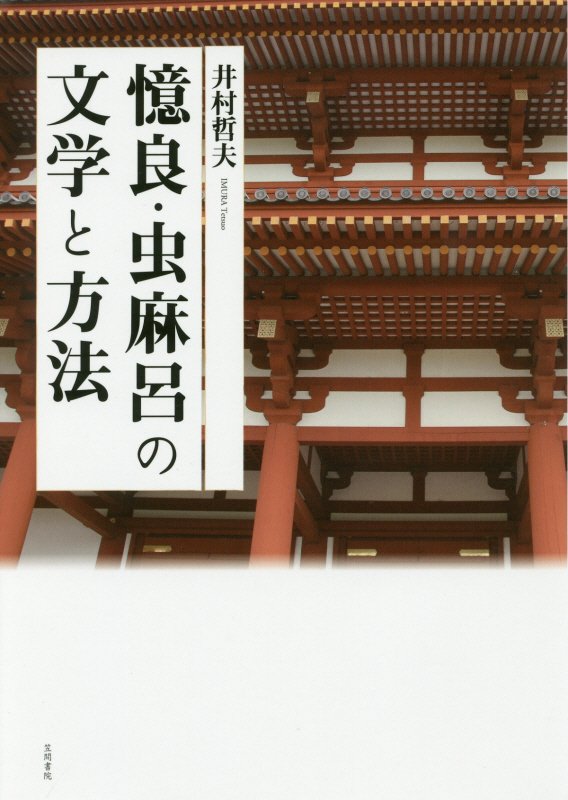 井村哲夫
IMURA Tetsuo
憶良・虫麻呂の
文学と方法
笠間書院